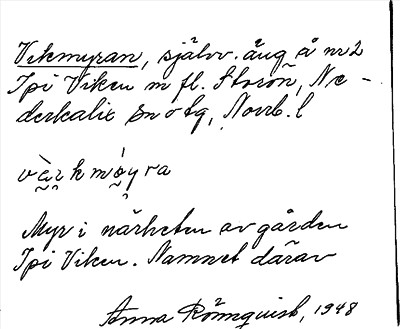 Vikmyran, självv. äng å nr 2
Ipi Viken m fl. Storön, Ne-
derkalix sn o tg, Norrb. l
Myr i närheten av gården
Ipi Viken. Namnet därav
Anna Rönnquist, 1948